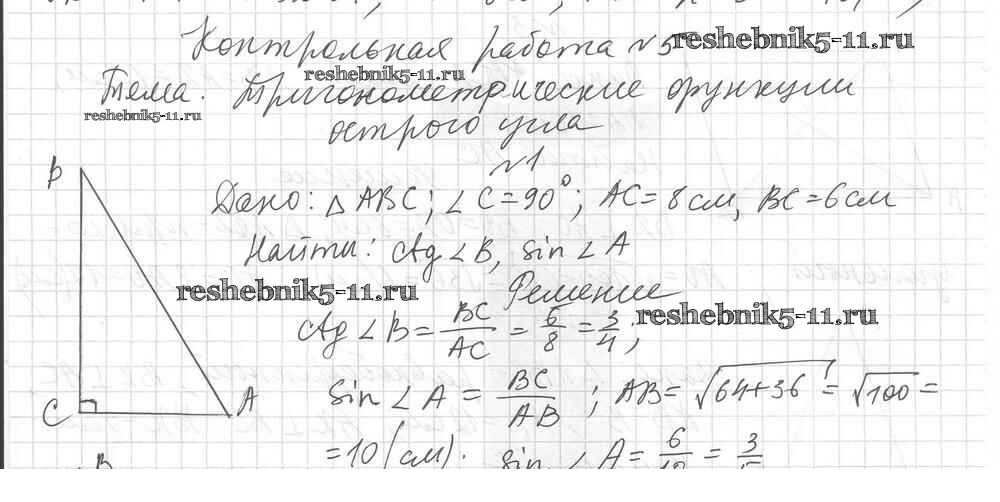 Контрольная работа №5 reshebnik5-11.ru
reshebnik5-11.ru
Тема. Тригонометрические функции
reshebnik5-11.ru
острого угла
№1
B
Дано: △ ABC; ∠ C = 90°; AC = 8 см, BC = 6 см
Найти: ctg ∠ B, sin ∠ A
reshebnik5-11.ru Решение
ctg ∠ B = BC/AC = 6/8 = 3/4; reshebnik5-11.ru
C A
sin ∠ A = BC/AB ; AB = √64+36 = √100 =
= 10 (см). sin ∠ A = 6/10 = 3/5
B